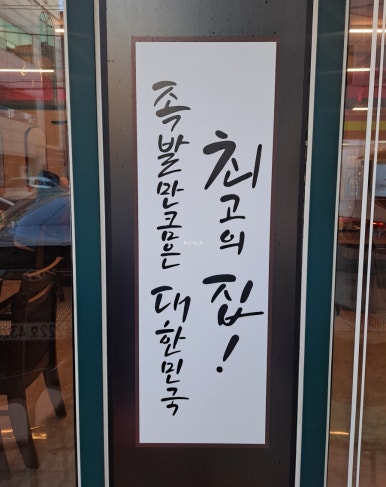 족발만큼은 대한민국
최고의 집!